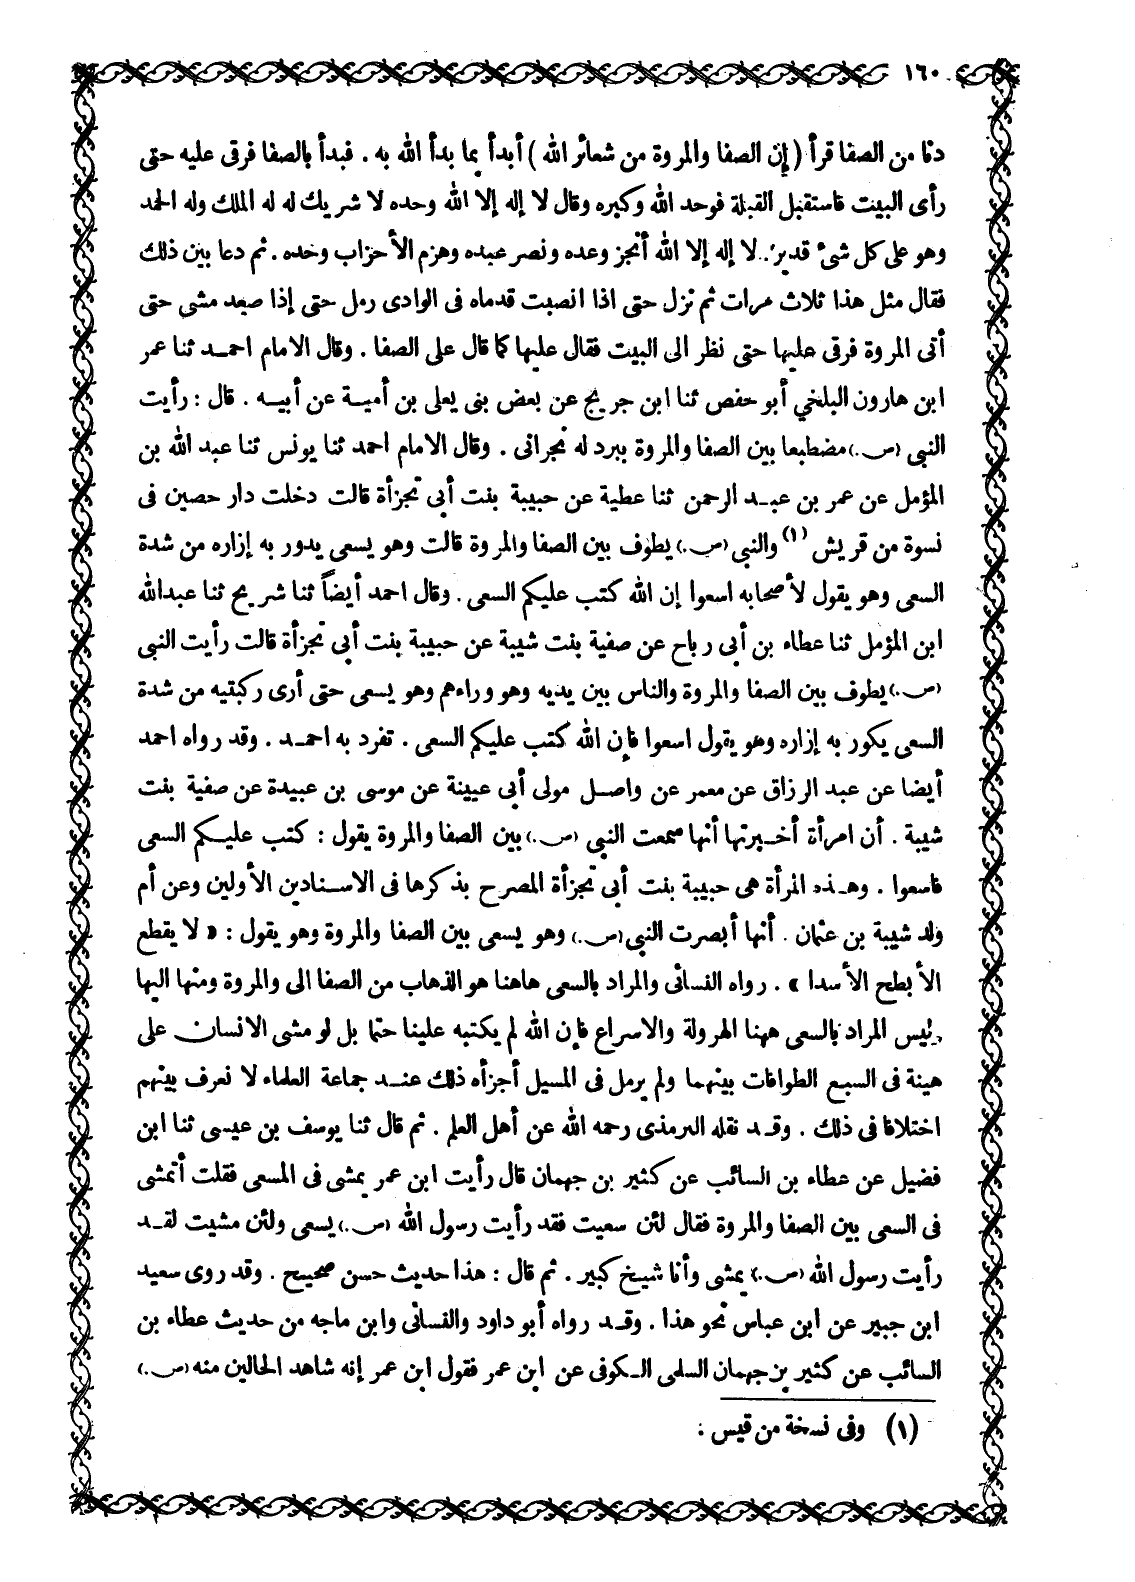 ١٦٠
دنا من الصفا قرأ ( إن الصفا والمروة من شعائر الله ) أبدأ بما بدأ الله به . فبدأ بالصفا فرقى عليه حتى
رأى البيت فاستقبل القبلة فوحد الله وكبره وقال لا إله إلا الله وحده لا شريك له له الملك وله الحمد
وهو على كل شىء قدير . لا إله إلا الله أنجز وعده ونصر عبده وهزم الأحزاب وحده . ثم دعا بين ذلك
فقال مثل هذا ثلاث مرات ثم نزل حتى اذا انصبت قدماه فى الوادى رمل حتى إذا صعد مشى حتى
أتى المروة فرقى عليها حتى نظر الى البيت فقال عليها كما قال على الصفا . وقال الامام احمد ثنا عمر
ابن هارون البلخي أبو حفص ثنا ابن جريج عن بعض بنى يعلى بن أمية عن أبيه . قال : رأيت
النبي (ص.) مضطبعا بين الصفا والمروة ببرد له نجرانى . وقال الامام احمد ثنا يونس ثنا عبد الله بن
المؤمل عن عمر بن عبد الرحمن ثنا عطية عن حبيبة بنت أبي تجزأة قالت دخلت دار حصين فى
نسوة من قريش (١) والنبي (ص.) يطوف بين الصفا والمروة قالت وهو يسعى يدور به إزاره من شدة
السعى وهو يقول لأصحابه اسعوا إن الله كتب عليكم السعى . وقال احمد أيضاً ثنا شريح ثنا عبدالله
ابن المؤمل ثنا عطاء بن أبى رباح عن صفية بنت شيبة عن حبيبة بنت أبي تجزأة قالت رأيت النبي
(ص.) يطوف بين الصفا والمروة والناس بين يديه وهو وراءهم وهو يسعى حتى أرى ركبتيه من شدة
السعى يكور به إزاره وهو يقول اسعوا فإن الله كتب عليكم السعى . تفرد به احمد . وقد رواه احمد
أيضا عن عبد الرزاق عن معمر عن واصل مولى أبى عيينة عن موسى بن عبيدة عن صفية بنت
شيبة . أن امرأة أخبرتها أنها سمعت النبي (ص.) بين الصفا والمروة يقول : كتب عليكم السعى
فاسعوا . وهذه المرأة هى حبيبة بنت أبى تجزأة المصرح بذكرها فى الاسنادين الأولين وعن أم
ولد شيبة بن عثمان . أنها أبصرت النبى (ص.) وهو يسعى بين الصفا والمروة وهو يقول : « لا يقطع
الأبطح الأسدا » . رواه النسائى والمراد بالسعى هاهنا هو الذهاب من الصفا الى والمروة ومنها اليها
وليس المراد بالسعى ههنا الهرولة والاسراع فإن الله لم يكتبه علينا حتما بل لو مشى الانسان على
هينة فى السبع الطوافات بينهما ولم يرمل فى المسيل أجزأه ذلك عند جماعة العلماء لا نعرف بينهم
اختلافا فى ذلك . وقد نقله الترمذى رحمه الله عن أهل العلم . ثم قال ثنا يوسف بن عيسى ثنا ابن
فضيل عن عطاء بن السائب عن كثير بن جهمان قال رأيت ابن عمر يمشى فى المسعى فقلت أتمشى
فى السعى بين الصفا والمروة فقال لئن سعيت فقد رأيت رسول الله (ص.) يسعى ولئن مشيت لقد
رأيت رسول الله (ص.) يمشى وأنا شيخ كبير . ثم قال : هذا حديث حسن صحيح . وقد روى سعيد
ابن جبير عن ابن عباس نحو هذا . وقد رواه أبو داود والنسائى وابن ماجه من حديث عطاء بن
السائب عن كثير بن جهمان السلمى الكوفى عن ابن عمر فقول ابن عمر إنه شاهد الحالين منه (ص.)
(١) وفى نسخة من قيس :